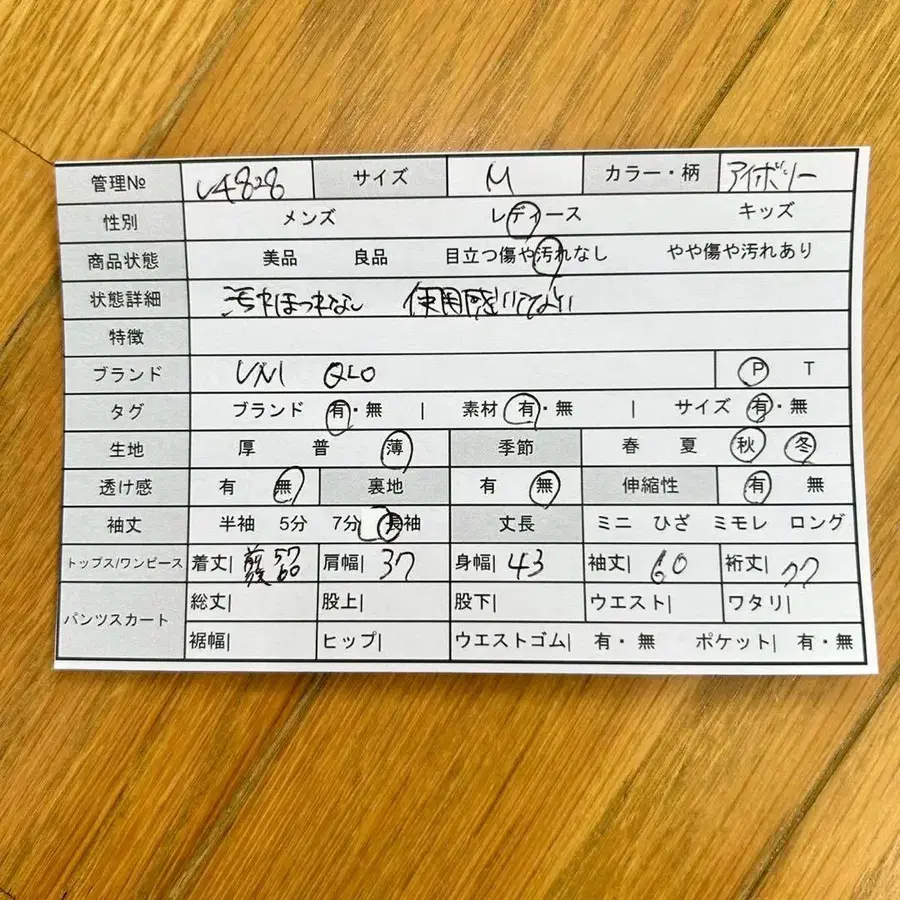 管理№ V4828 サイズ M カラー・柄 アイボリー
性別 メンズ レディース キッズ
商品状態 美品 良品 目立つ傷や汚れなし やや傷や汚れあり
状態詳細 汚れほつれなし 使用感いてない
特徴
ブランド UNI QLO P T
タグ ブランド 有・無 | 素材 有・無 | サイズ 有・無
生地 厚 普 薄 季節 春 夏 秋 冬
透け感 有 無 裏地 有 無 伸縮性 有 無
袖丈 半袖 5分 7分 長袖 丈長 ミニ ひざ ミモレ ロング
トップス/ワンピース 着丈| 前57 後60 肩幅| 37 身幅| 43 袖丈| 60 裄丈| 77
パンツスカート 総丈| 股上| 股下| ウエスト| ワタリ|
裾幅| ヒップ| ウエストゴム| 有・無 ポケット| 有・無